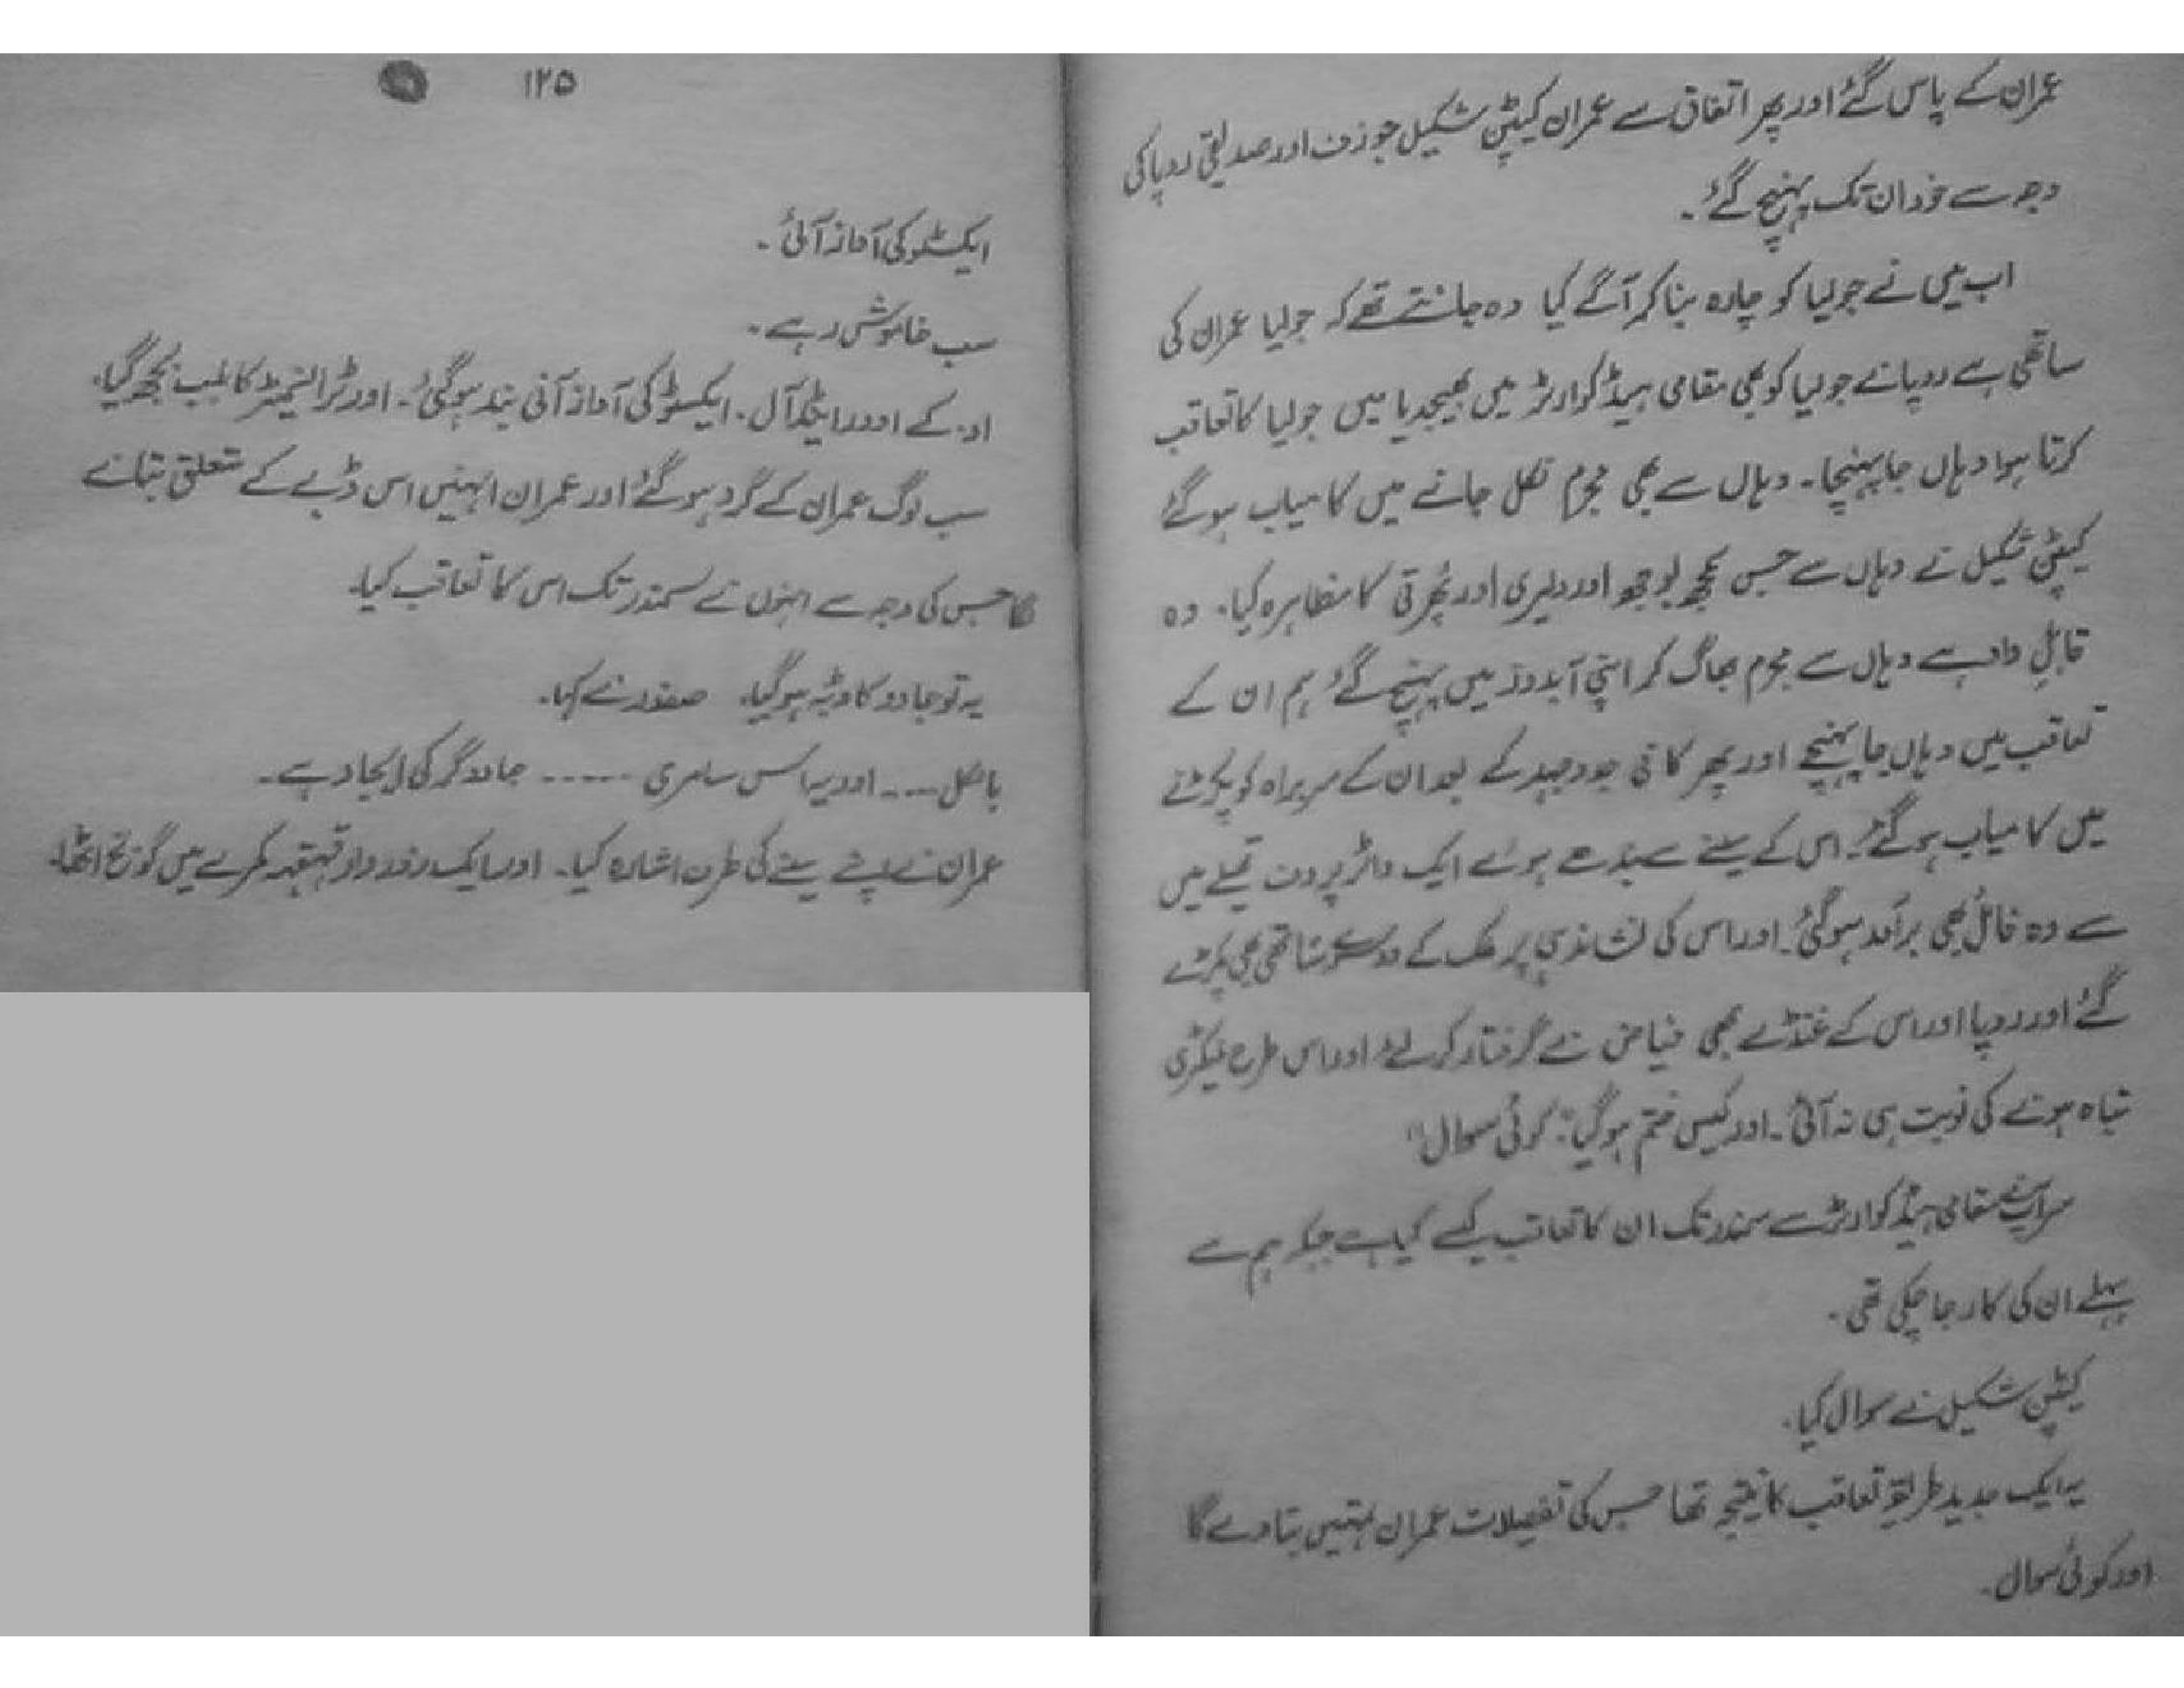 عمران کے پاس گئے اور پھر اتفاق سے عمران کیپٹن شکیل جوزف اور صدیقی روپا کی
وجہ سے خود ان تک پہنچ گئے۔
اب میں نے جولیا کو چارہ بنا کر آگے کیا وہ جانتے تھے کہ جولیا عمران کی
ساتھی ہے روپا نے جولیا کو بھی مقامی ہیڈ کوارٹر میں بھیجدیا میں جولیا کا تعاقب
کرتا ہوا وہاں جا پہنچا۔ وہاں سے بھی مجرم نکل جانے میں کامیاب ہو گئے
کیپٹن شکیل نے وہاں سے جس سمجھ بوجھ اور دلیری اور پُھرتی کا مظاہرہ کیا۔ وہ
قابلِ داد ہے وہاں سے مجرم بھاگ کر اپنی آبدوز میں پہنچ گئے ہم ان کے
تعاقب میں وہاں جا پہنچے اور پھر کافی جدوجہد کے بعد ان کے سربراہ کو پکڑنے
میں کامیاب ہو گئے۔ اس کے سینے سے بندھے ہوئے ایک واٹر پروف تھیلے میں
سے وہ فائل بھی برآمد ہو گئی۔ اور اس کی نشاندہی پر ملک کے دوسرے ساتھی بھی پکڑے
گئے اور روپا اور اس کے غنڈے بھی فیاض نے گرفتار کر لئے اور اس طرح فیکٹری
تباہ ہونے کی نوبت ہی نہ آئی۔ اور کیس ختم ہو گیا۔ کوئی سوال"
سر آپ نے مقامی ہیڈ کوارٹر سے سمندر تک ان کا تعاقب کیسے کیا ہے جبکہ ہم سے
پہلے ان کی کار جا چکی تھی۔
کیپٹن شکیل نے سوال کیا۔
یہ ایک جدید طریقہ تعاقب کا نتیجہ تھا جس کی تفصیلات عمران تمہیں بتا دے گا
اور کوئی سوال۔
۱۲۵
ایکسٹو کی آواز آئی۔
سب خاموش رہے۔
او۔ کے اوور اینڈ آل۔ ایکسٹو کی آواز آنی بند ہو گئی۔ اور ٹرانسمیٹر کا بلب بجھ گیا۔
سب لوگ عمران کے گرد ہو گئے اور عمران انہیں اس ڈبے کے متعلق بتانے
لگا جس کی وجہ سے انہوں نے سمندر تک اس کا تعاقب کیا۔
یہ تو جادو کا ڈبہ ہو گیا۔ صفدر نے کہا۔
بالکل۔۔۔۔ اور یہ اس سامری ۔۔۔۔۔ جادوگر کی ایجاد ہے۔
عمران نے اپنے سینے کی طرف اشارہ کیا۔ اور ایک زوردار قہقہہ کمرے میں گونج اٹھا۔